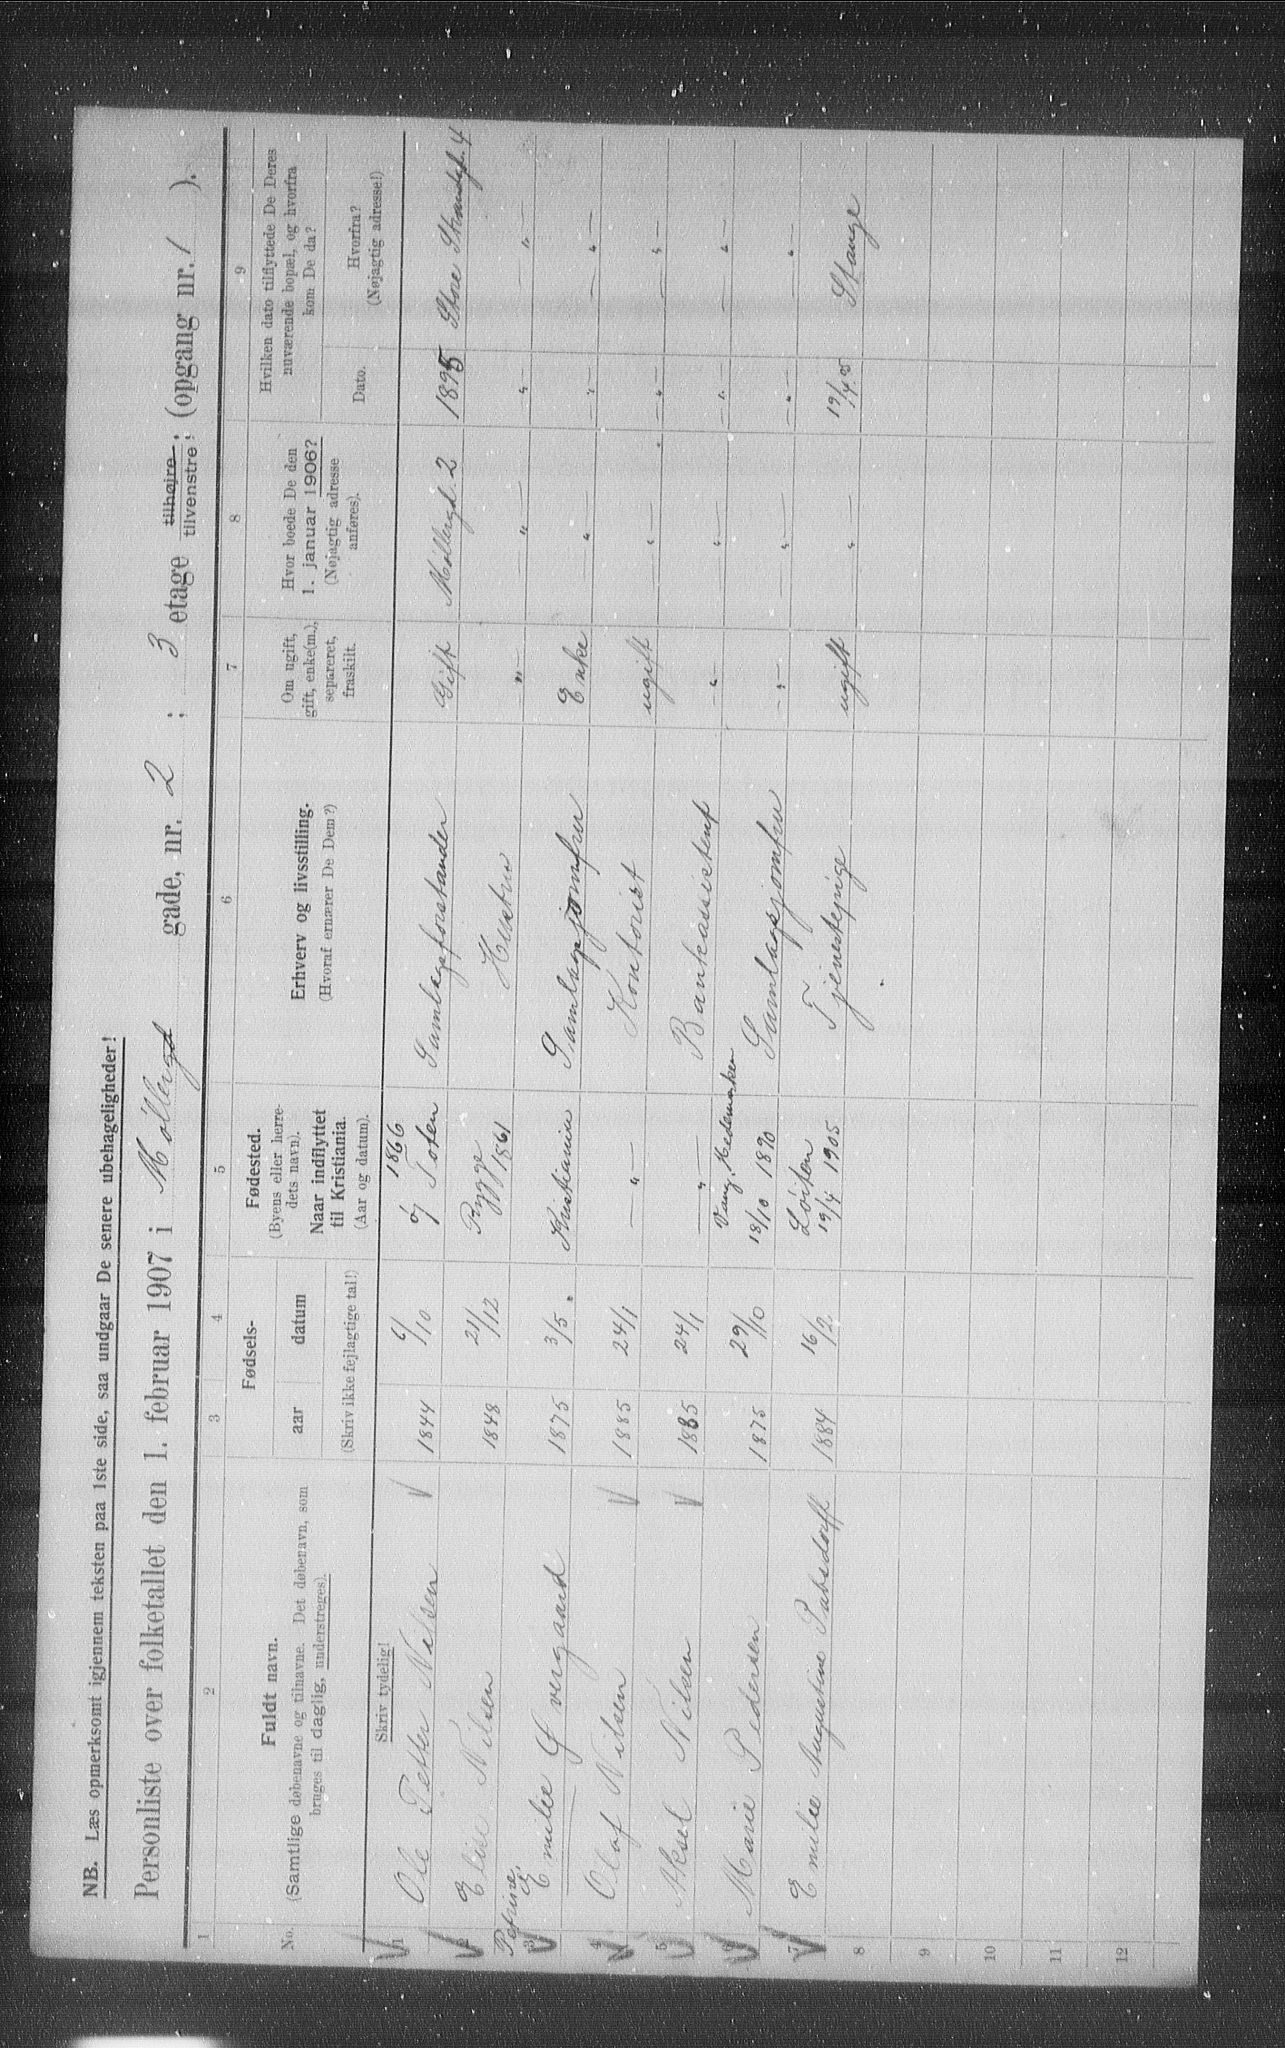 NB. Læs opmerksomt igjennem teksten paa 1ste side, saa undgaar De senere ubehageligheder!
Personliste over folketallet den 1. februar 1907 i Møllergd gade, nr. 2 ; 3 etage tilhøire, tilvenstre, (opgang nr. 1 ).
1 2 3 4 5 6 7 8 9
No. Fuldt navn. (Samtlige døbenavne og tilnavne. Det døbenavn, som bruges til daglig, understreges).
Fødsels- aar datum (Skriv ikke fejlagtige tal!)
Fødested. (Byens eller herredets navn). Naar indflyttet til Kristiania. (Aar og datum).
Erhverv og livsstilling. (Hvoraf ernærer De Dem?)
Om ugift, gift, enke(m.), separeret, fraskilt.
Hvor boede De den 1. januar 1906? (Nøjagtig adresse anføres).
Hvilken dato tilflyttede De Deres nuværende bopæl, og hvorfra kom De da?
Dato. Hvorfra? (Nøjagtig adresse!)
Skriv tydelig!
1 Ole Petter Nilsen 1844 6/10 Ø Toten 1866 Samlagsforstander Gift Møllergd. 2 1895 Store Strandg. 4
2 Elise Nilsen 1848 21/12 Rygge 1861 Hustru " — " — — " — — " —
3 Petrine Emilie Øvergaard 1875 3/5 Kristiania Samlagsjomfru Enke — " — — " — — " —
4 Olaf Nilsen 1885 24/1 — " — Kontorist ugift — " — — " — — " —
5 Aksel Nilsen 1885 24/1 — " — Bankassistent — " — — " — — " — — " —
6 Marie Pedersen 1875 29/10 Vang, Hedemarken 18/10 1890 Samlagsjomfru — " — — " — — " — — " —
7 Emilie Augustine Pabsdorff 1884 16/2 Løiten 19/4 1905 Tjenestepige ugift — " — 19/4 05 Stange
8
9
10
11
12